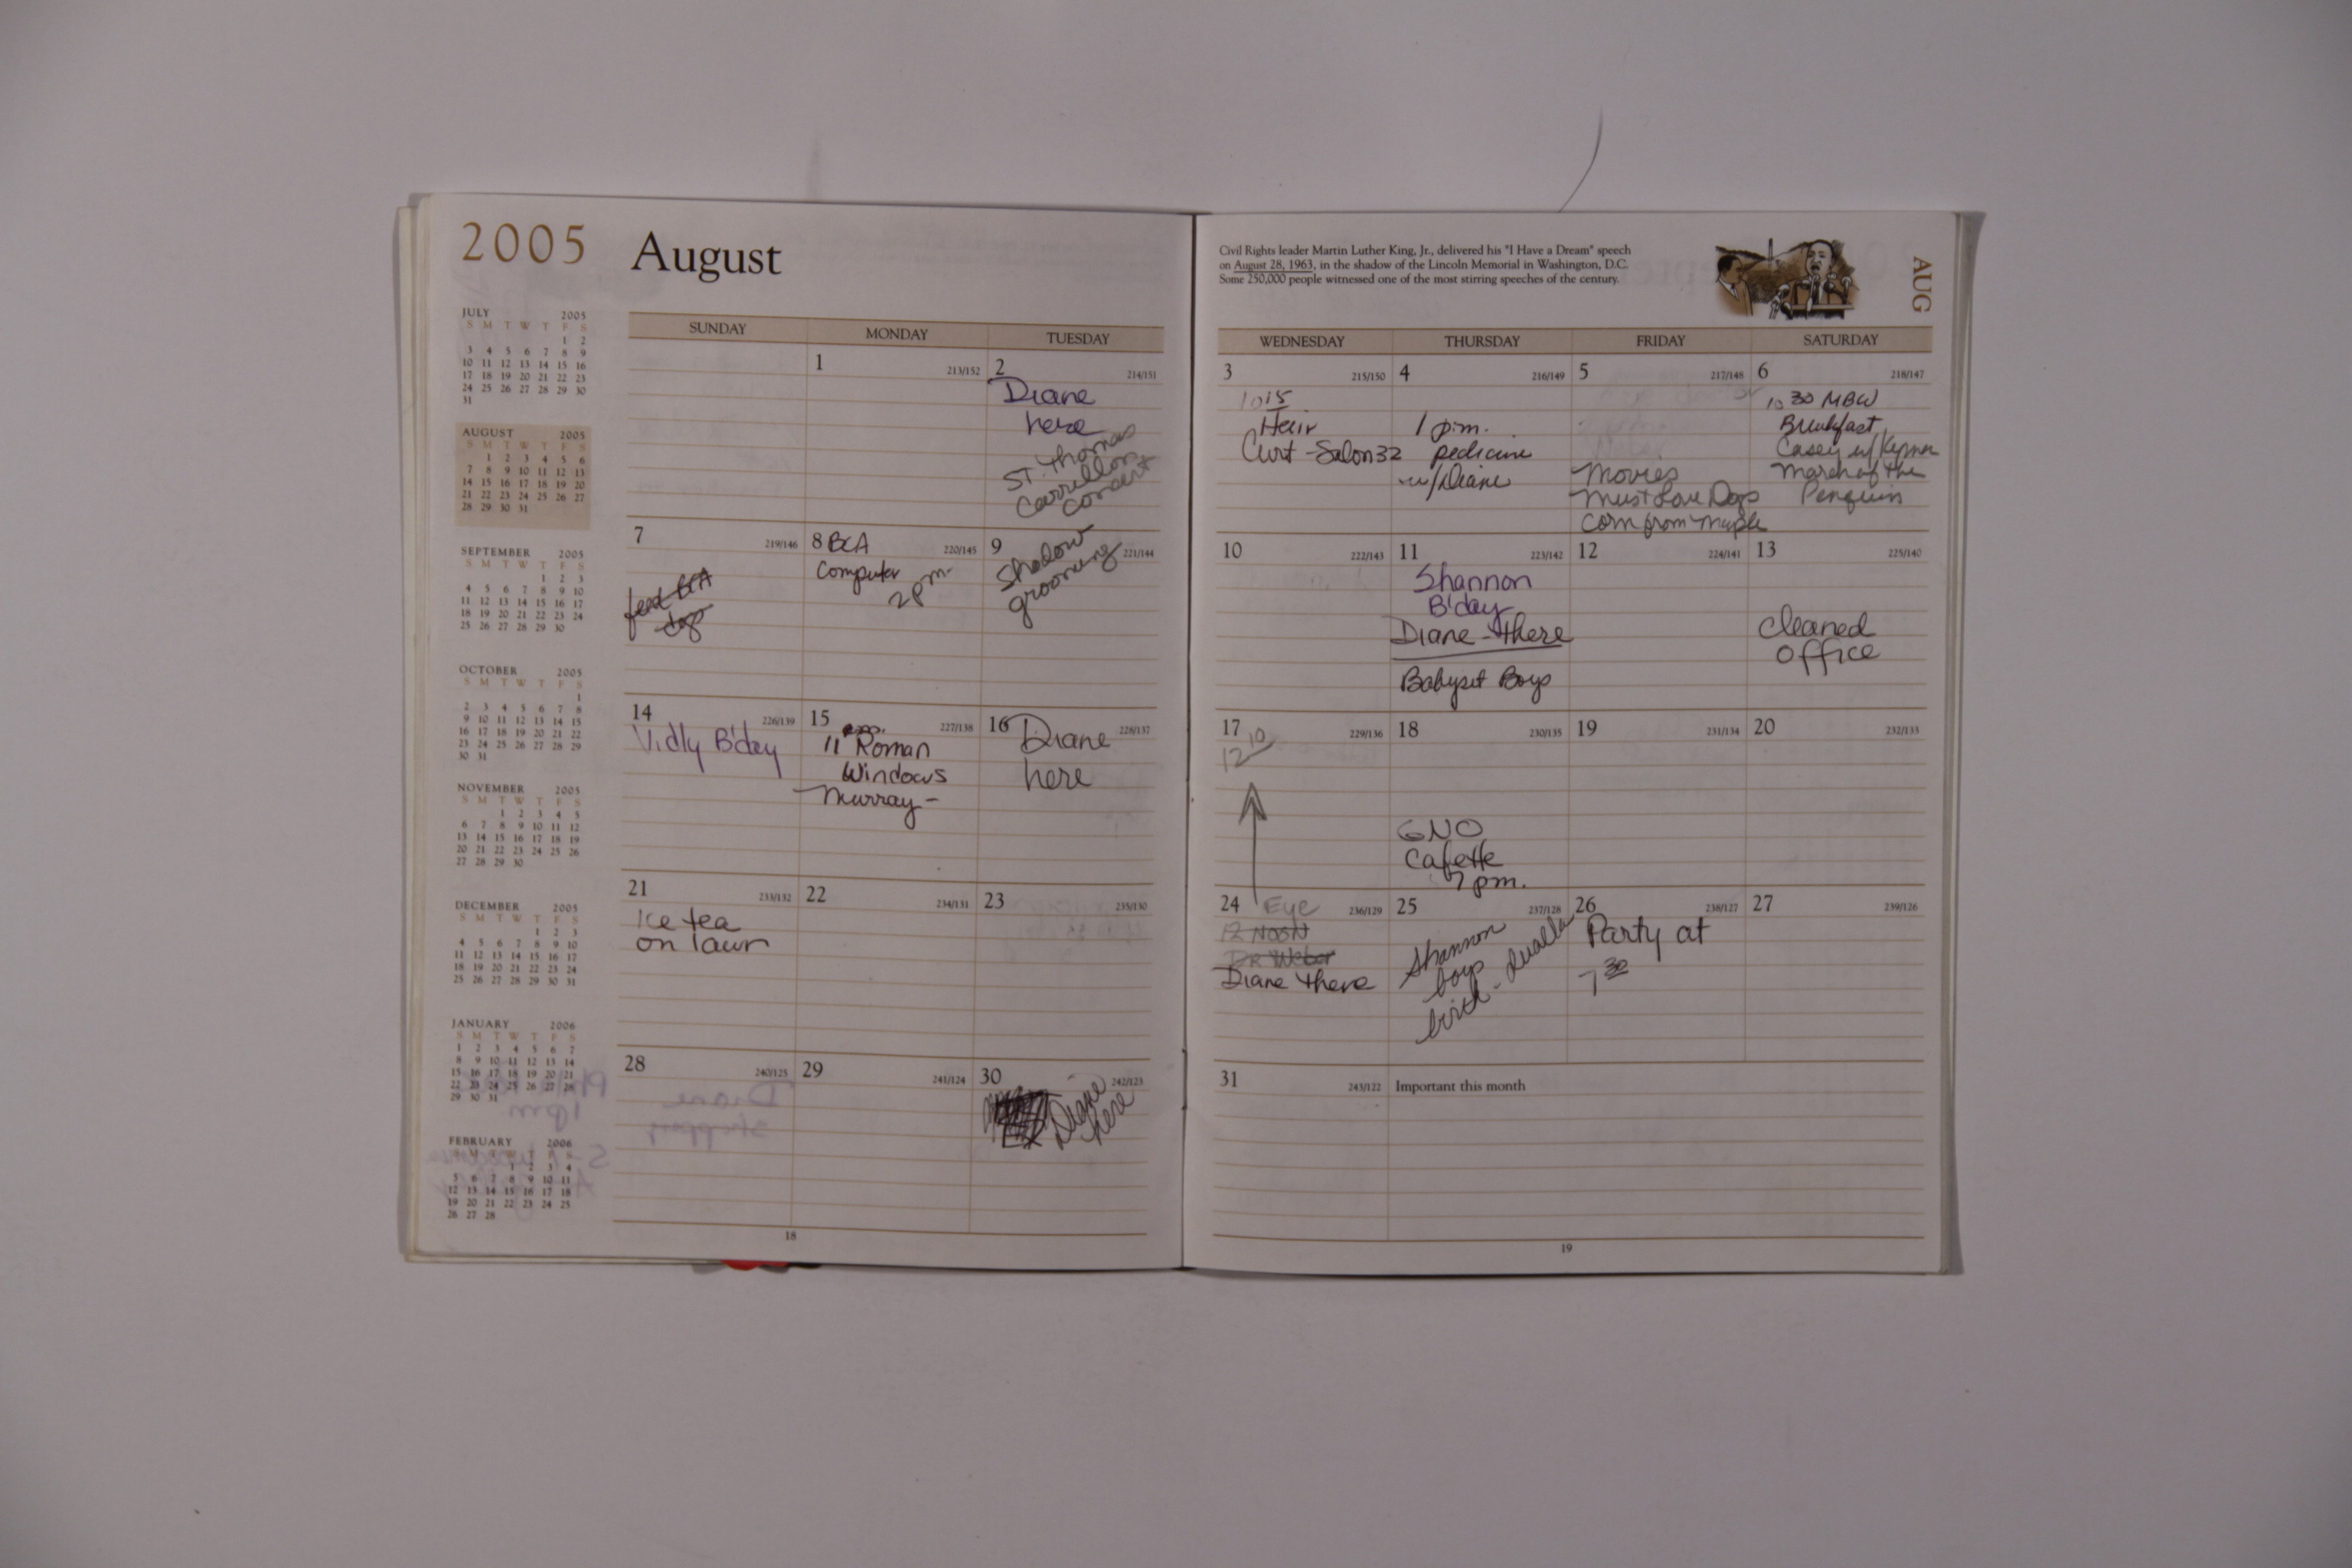 2005 August
JULY 2005
S M T W T F S
1 2
3 4 5 6 7 8 9
10 11 12 13 14 15 16
17 18 19 20 21 22 23
24 25 26 27 28 29 30
31
AUGUST 2005
S M T W T F S
1 2 3 4 5 6
7 8 9 10 11 12 13
14 15 16 17 18 19 20
21 22 23 24 25 26 27
28 29 30 31
SEPTEMBER 2005
S M T W T F S
1 2 3
4 5 6 7 8 9 10
11 12 13 14 15 16 17
18 19 20 21 22 23 24
25 26 27 28 29 30
OCTOBER 2005
S M T W T F S
1
2 3 4 5 6 7 8
9 10 11 12 13 14 15
16 17 18 19 20 21 22
23 24 25 26 27 28 29
30 31
NOVEMBER 2005
S M T W T F S
1 2 3 4 5
6 7 8 9 10 11 12
13 14 15 16 17 18 19
20 21 22 23 24 25 26
27 28 29 30
DECEMBER 2005
S M T W T F S
1 2 3
4 5 6 7 8 9 10
11 12 13 14 15 16 17
18 19 20 21 22 23 24
25 26 27 28 29 30 31
JANUARY 2006
S M T W T F S
1 2 3 4 5 6 7
8 9 10 11 12 13 14
15 16 17 18 19 20 21
22 23 24 25 26 27 28
29 30 31
FEBRUARY 2006
S M T W T F S
1 2 3 4
5 6 7 8 9 10 11
12 13 14 15 16 17 18
19 20 21 22 23 24 25
26 27 28
SUNDAY MONDAY TUESDAY
1 213/152
2 214/151
Diane
here
St. Thomas
Carrillon
concert
7 219/146
feed BCA
dogs
8 BCA 220/145
Computer
2 pm.
9 221/144
Shadow
grooming
14 226/139
Vidly B'day
15 227/138
11 Roman
Windows
Murray -
16 228/137
Diane
here
21 233/132
Ice tea
on lawn
22 234/131
23 235/130
28 240/125
29 241/124
30 242/123
Diane
here
18
Civil Rights leader Martin Luther King, Jr., delivered his "I Have a Dream" speech
on August 28, 1963, in the shadow of the Lincoln Memorial in Washington, D.C.
Some 250,000 people witnessed one of the most stirring speeches of the century.
AUG
WEDNESDAY THURSDAY FRIDAY SATURDAY
3 215/150
10 15
Hair
Curt - Salon 32
4 216/149
1 p.m.
pedicure
w/Diane
5 217/148
Movies
Must Love Dogs
Corn from Maple
6 218/147
10 30 MBW
Breakfast
Casey w/
March of the
Penguin
10 222/143
11 223/142
Shannon
B'day
Diane - there
Babysit Boys
12 224/141
13 225/140
cleaned
office
17 229/136
12 10
18 230/135
GNO
Cafette
7 pm.
19 231/134
20 232/133
24 Eye 236/129
12 NOON
DR Weber
Diane there
25 237/128
Shannon
boys
birth-
26 238/127
Party at
7 30
27 239/126
31 243/122
Important this month
19